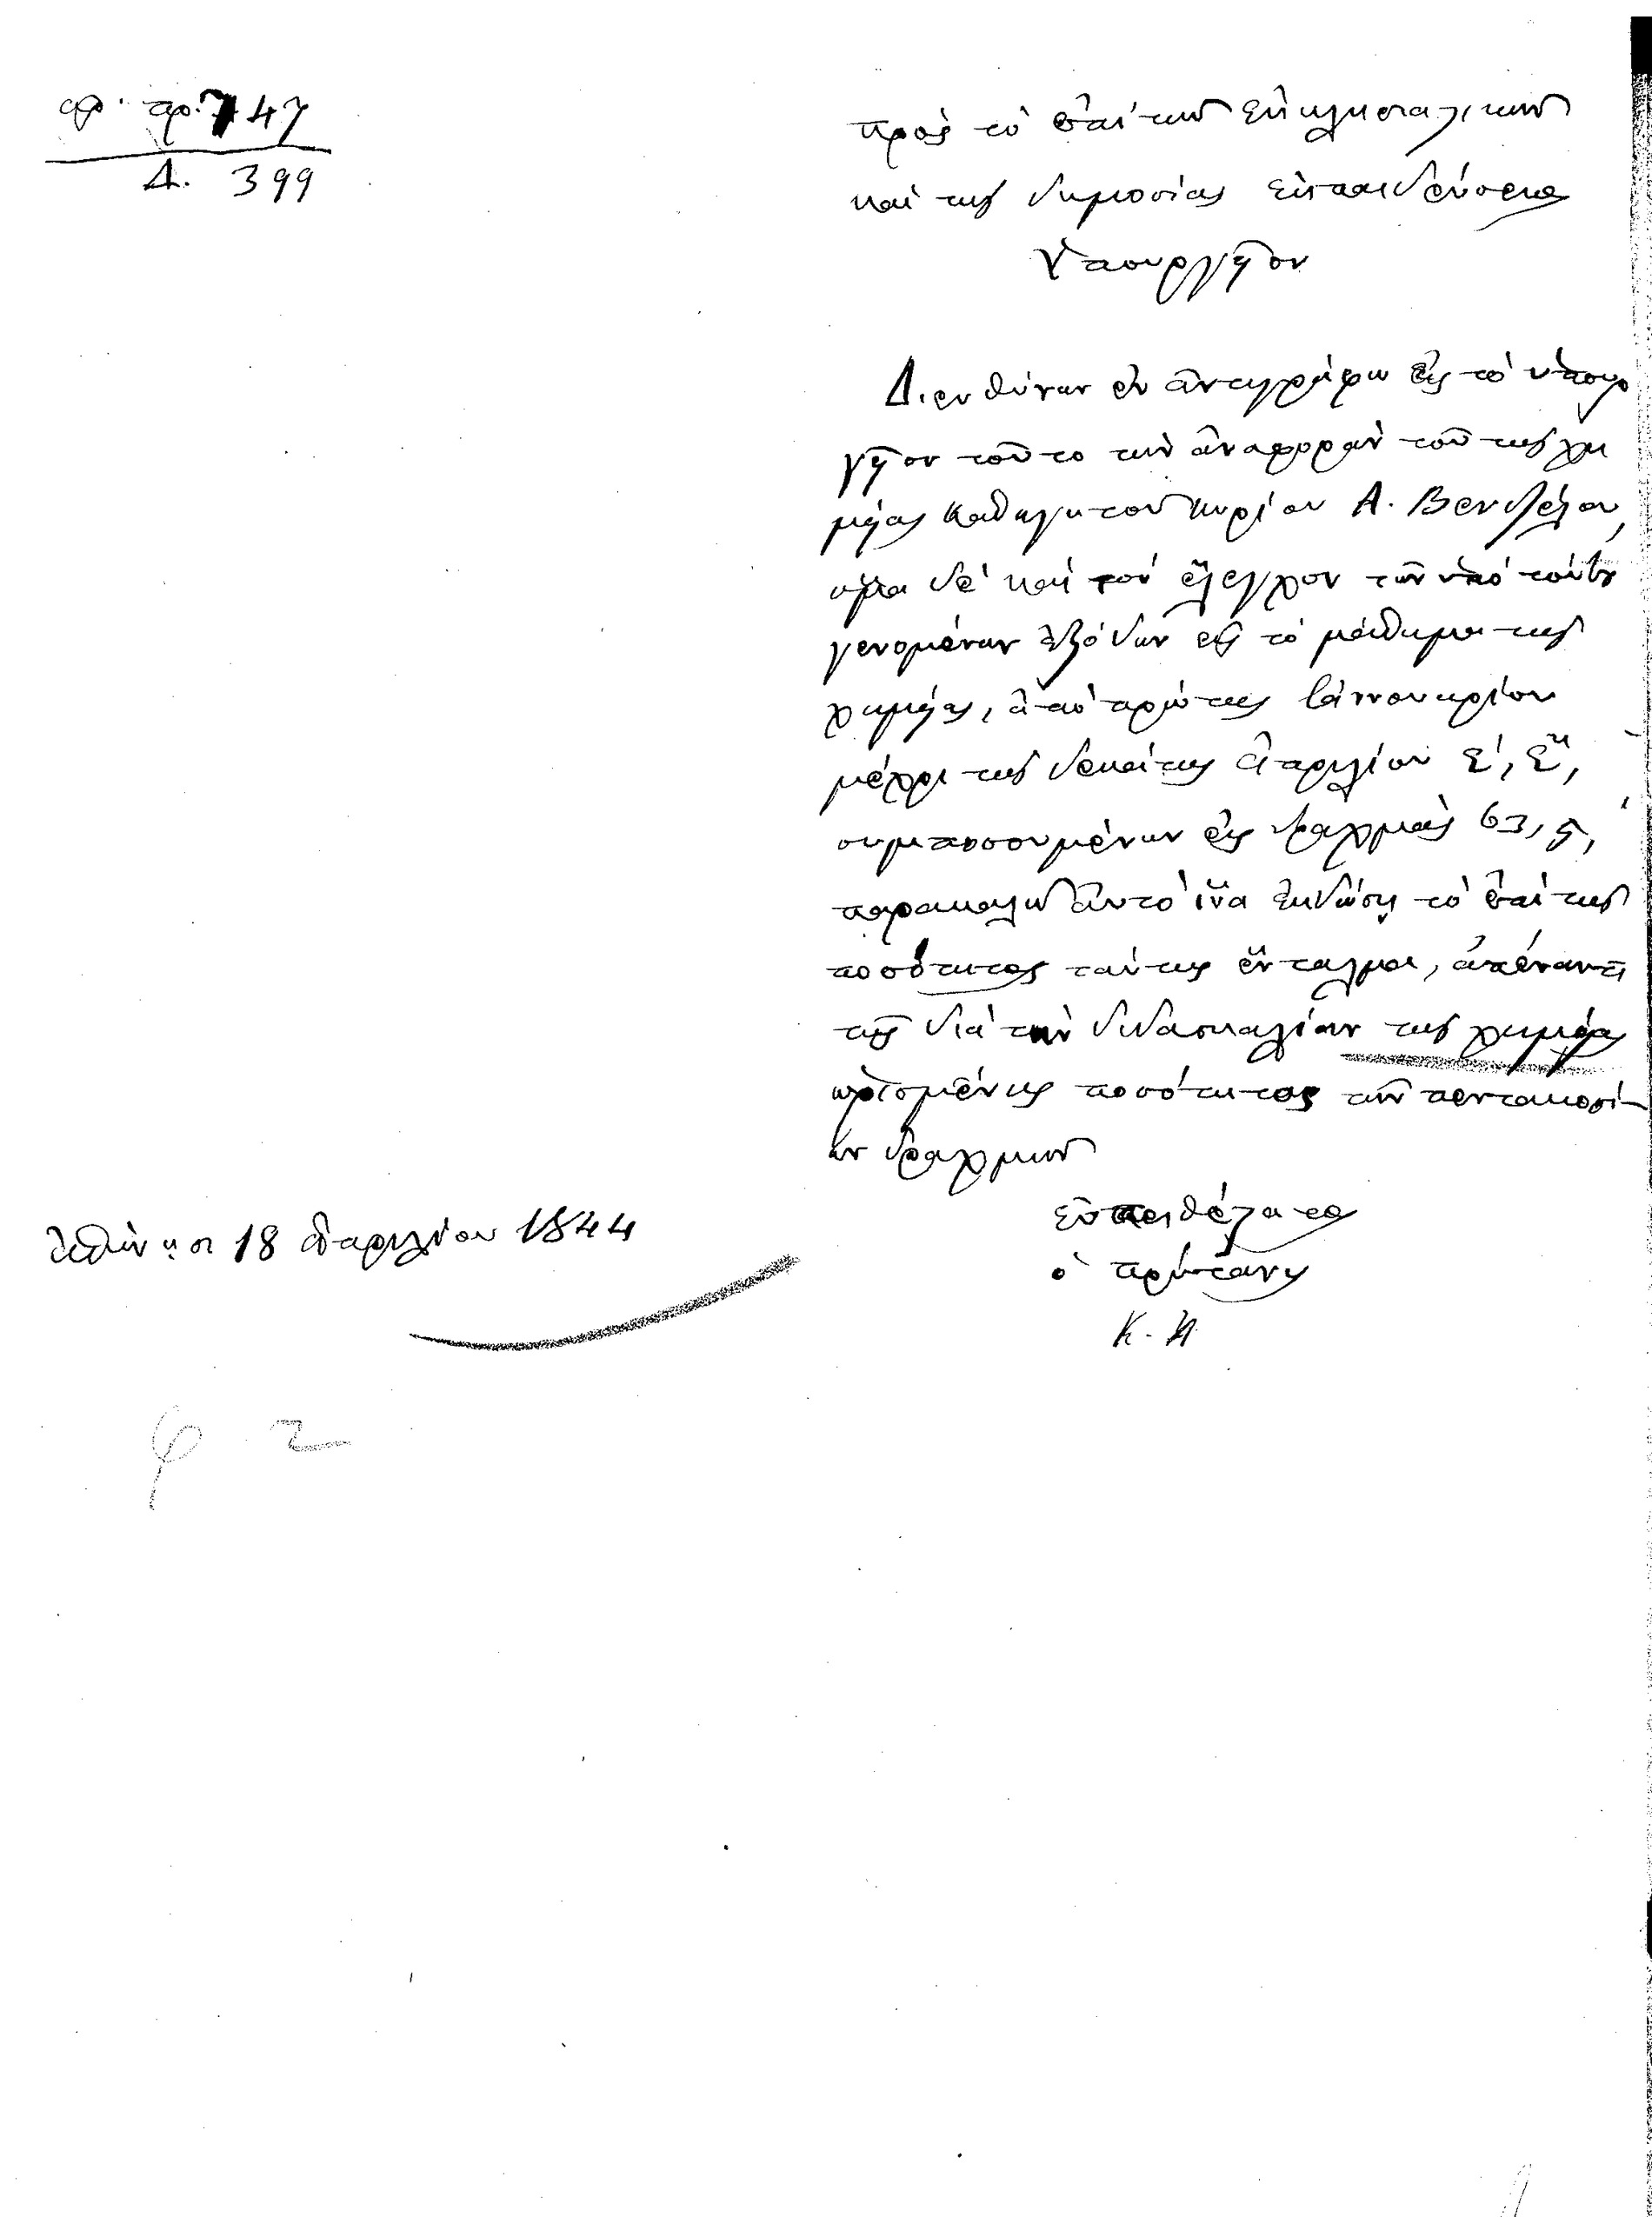 αρ. πρ. 747
Δ. 399
πρὸς τὸ ἐπὶ τῶν Ἐκκλησιαστικῶν
καὶ τῆς δημοσίας ἐκπαιδεύσεως
Ὑπουργεῖον
Διευθύνων ἐν ἀντιγράφῳ εἰς τὸ ὑπουρ
γεῖον τοῦτο τὴν ἀναφορὰν τοῦ τῆς χη
μείας καθηγητοῦ κυρίου Α. Βενιζέλου,
ἅμα δὲ καὶ τὸν ἔλεγχον τῶν ὑπὸ τούτου
γενομένων ἐξόδων εἰς τὸ μάθημα τῆς
χημείας, ἀπὸ πρώτης ἰαννουαρίου
μέχρι τῆς δεκάτης ἀπριλίου ἐ. ἔ.,
συμποσουμένων εἰς δραχμὰς 63,5,
παρακαλῶ αὐτὸ ἵνα ἐκδώσῃ τὸ ἐπὶ τῆς
ποσότητος ταύτης ἔνταλμα, ἀπέναντι
τῆς διὰ τὴν διδασκαλίαν τῆς χημείας
ὡρισμένης ποσότητος τῶν πεντακοσί-
ων δραχμῶν
εὐπειθέστατος
ὁ πρύτανις
Ἀθήνησι 18 ἀπριλίου 1844
φ 2